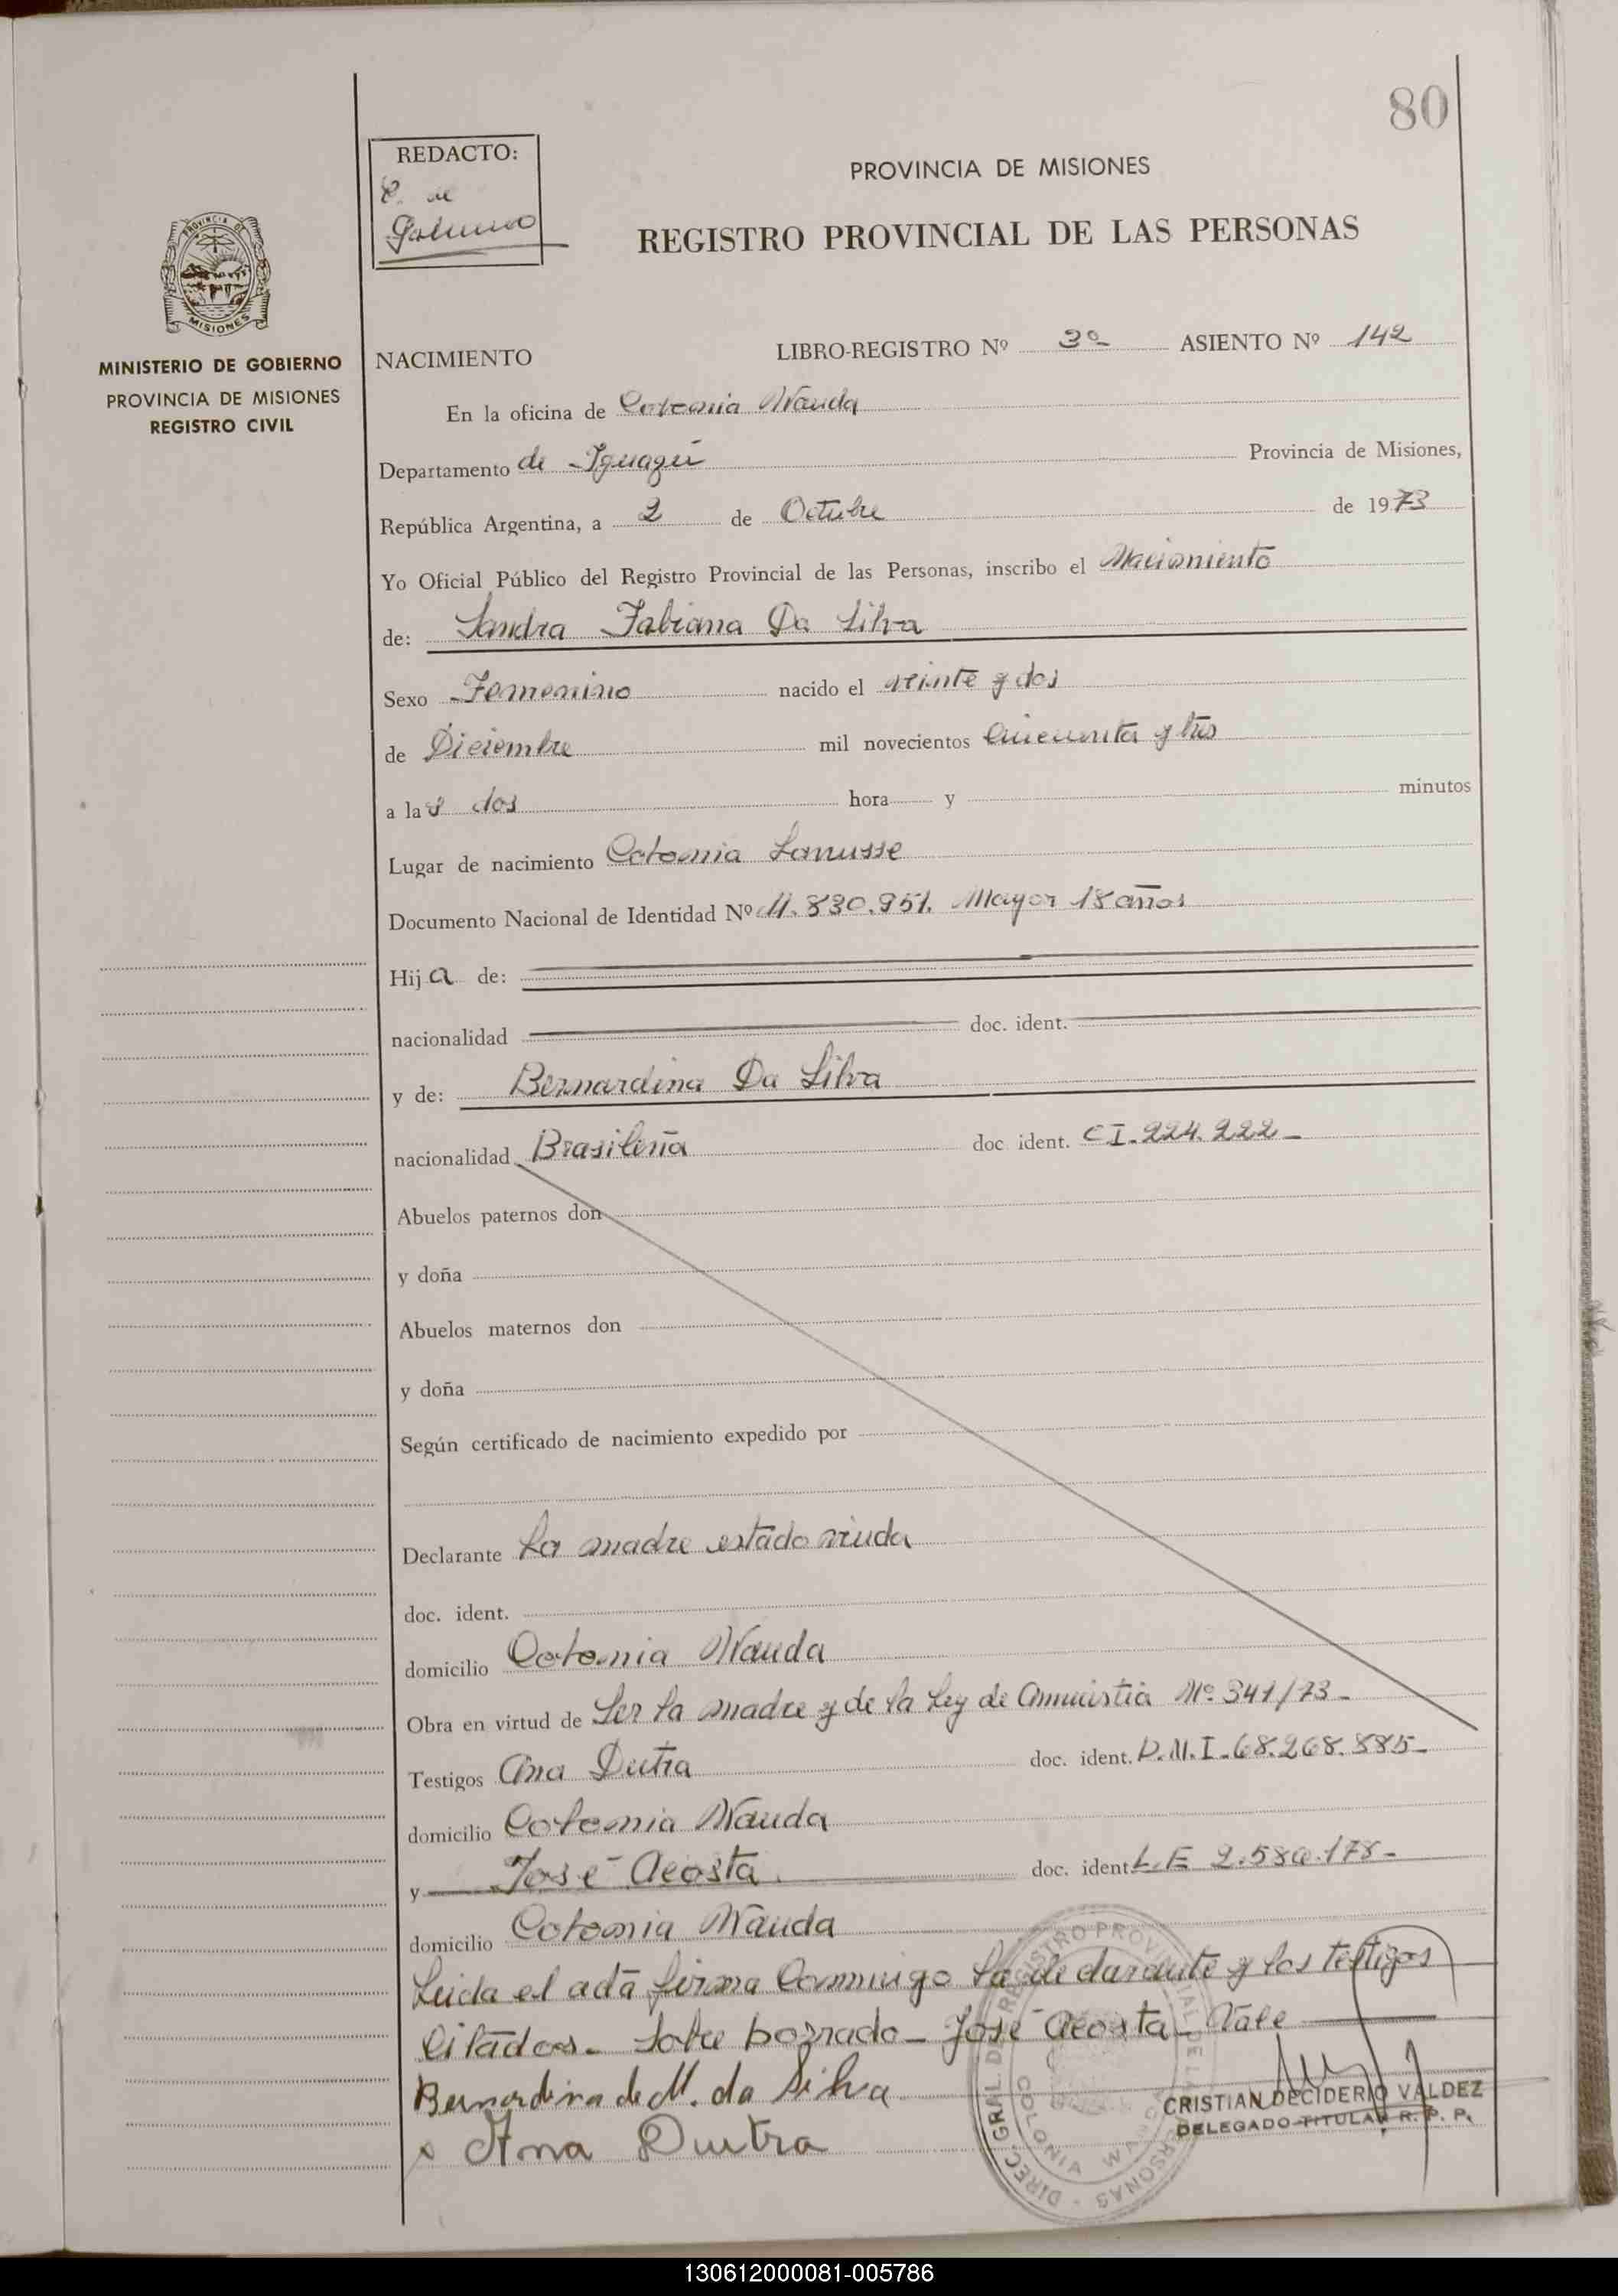 80
REDACTO:
PROVINCIA DE MISIONES
REGISTRO PROVINCIAL DE LAS PERSONAS
MISIONES
MINISTERIO DE GOBIERNO
PROVINCIA DE MISIONES
REGISTRO CIVIL
NACIMIENTO LIBRO-REGISTRO Nº 3º ASIENTO Nº 142
En la oficina de Colonia Wanda
Departamento de Iguazú Provincia de Misiones,
República Argentina, a 2 de Octubre de 1973
Yo Oficial Público del Registro Provincial de las Personas, inscribo el Nacimiento
de: Sandra Fabiana Da Silva
Sexo Femenino nacido el veinte y dos
de Diciembre mil novecientos cincuenta y tres
a las dos hora y minutos
Lugar de nacimiento Colonia Lanusse
Documento Nacional de Identidad Nº 11.830.951. Mayor 18 años
Hija de:
nacionalidad doc. ident.
y de: Bernardina Da Silva
nacionalidad Brasileña doc ident. CI. 224.222-
Abuelos paternos don
y doña
Abuelos maternos don
y doña
Según certificado de nacimiento expedido por
Declarante La madre estado viuda
doc. ident.
domicilio Colonia Wanda
Obra en virtud de Ser la madre y de la Ley de Amnistia Nº 341/73-
Testigos Ana Dutra doc. ident. D.N.I. 68.268.885-
domicilio Colonia Wanda
y José Acosta doc. ident L.E
domicilio Colonia Wanda
Leida el acta firma Conmigo la declarante y los testigos
Citados. Sobre borrado- José Acosta- Vale
Bernardina de M. da Silva
Ana Dutra
CRISTIAN DECIDERIO VALDEZ
DELEGADO TITULAR R. P. P.
DIREC. GRAL. DEL REGISTRO PROVINCIAL DE LAS PERSONAS
COLONIA WANDA
130612000081-005786